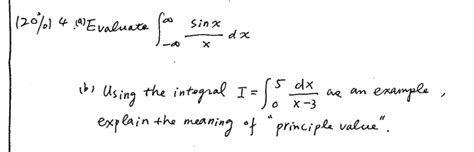 (20%) 4. (a) Evaluate ∫_{-∞}^{∞} sin x / x dx
(b) Using the integral I = ∫_0^5 dx / x-3 as an example,
explain the meaning of "principle value".